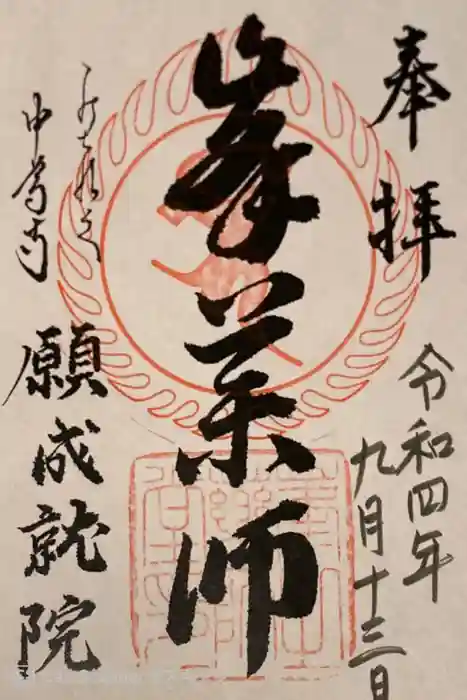 奉拝
令和四年
九月十三日
峯薬師
中尊寺
願成就院